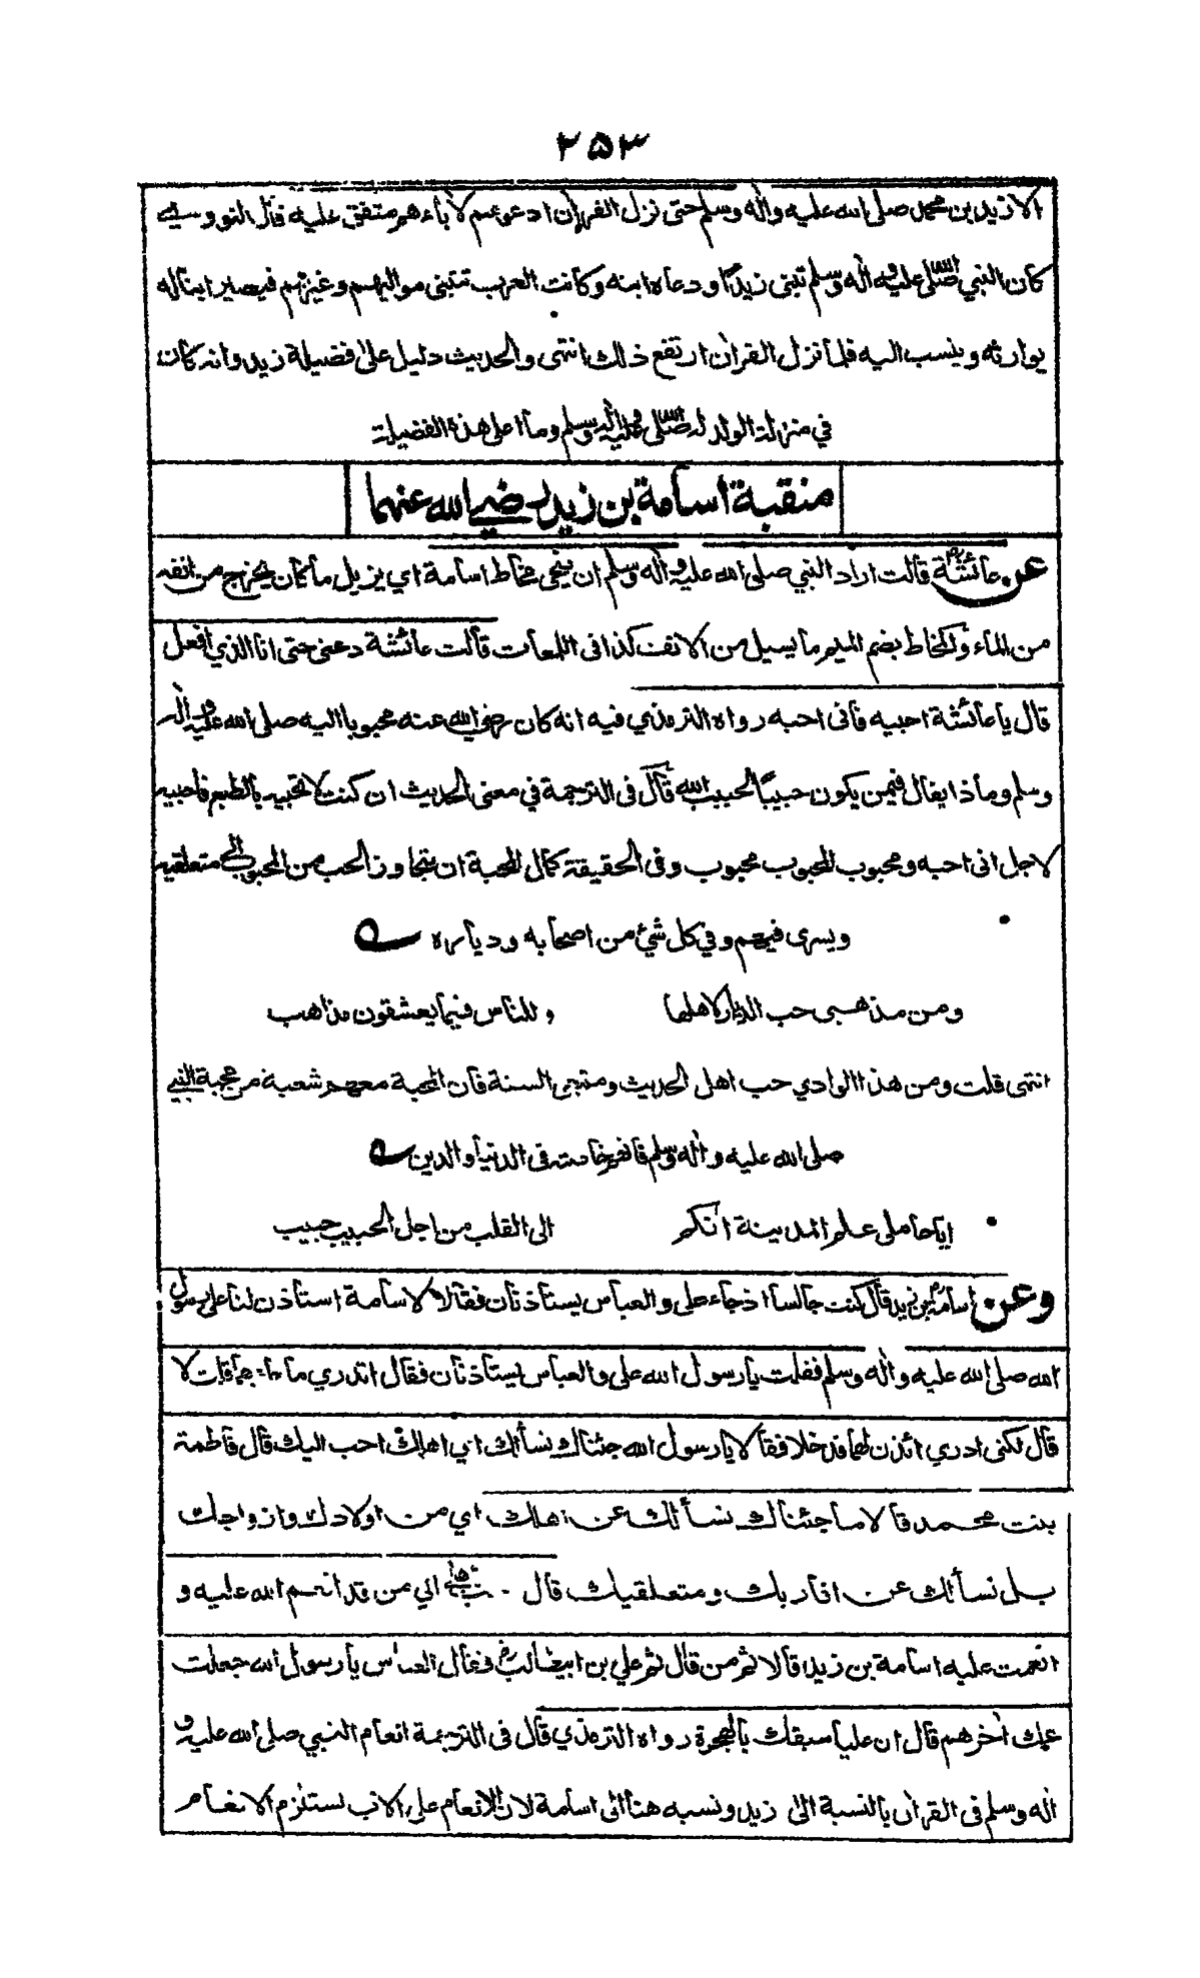 ٢٥٣
الا زيد بن محمد صلى الله عليه واٰله وسلم حتى نزل القراٰن ادعوهم لاٰبائهم متفق عليه قال النووي
كان النبي صلى الله عليه واٰله وسلم تبنى زيدًا ودعاه ابنه وكانت العرب تتبنى مواليهم وغيرهم فيصير ابنا له
يوارثه وينسب اليه فلما نزل القراٰن ارتفع ذلك انتهى والحديث دليل على فضيلة زيد وانه كان
في منزلة الولد له صلى الله عليه واٰله وسلم وما اعلى هذه الفضيلة
منقبة اسامة بن زيد رضي الله عنهما
عن عائشة قالت اراد النبي صلى الله عليه واٰله وسلم ان ينحي مخاط اسامة اي يزيل ما كان يخرج من انفه
من الماء والمخاط بضم الميم ما يسيل من الانف كذا في اللمعات قالت عائشة دعني حتى انا الذي افعل
قال يا عائشة احبيه فاني احبه رواه الترمذي فيه انه كان رضي الله عنه محبوبا اليه صلى الله عليه واٰله
وسلم وماذا يقال فيمن يكون حبيبًا لحبيب الله قال في الترجمة في معنى الحديث ان كنت لا تحبيه بالطبع فاحبيه
لاجل اني احبه ومحبوب المحبوب محبوب وفي الحقيقة كمال المحبة ان يتجاوز الحب من المحبوب الى متعلقيه
ويسرى فيهم وفي كل شيء من اصحابه ودياره
ومن مذهبي حب الديار لاهلها وللناس فيما يعشقون مذاهب
انتهى قلت ومن هذا الوادي حب اهل الحديث ومتبعي السنة فان المحبة معهم شعبة من محبة النبي
صلى الله عليه واٰله وسلم فانهم خاصته في الدنيا والدين
ايا حاملي علم المدينة انكم الى القلب من اجل الحبيب حبيب
وعن اسامة بن زيد قال كنت جالسا اذ جاء علي والعباس يستاذنان فقالا لاسامة استاذن لنا على رسول
الله صلى الله عليه واٰله وسلم فقلت يا رسول الله علي والعباس يستاذنان فقال اتدري ما جاء بهما قلت لا
قال لكني ادري ائذن لهما فدخلا فقالا يا رسول الله جئناك نسألك اي اهلك احب اليك قال فاطمة
بنت محمد قالا ما جئناك نسألك عن اهلك اي من اولادك وازواجك
بل نسألك عن اقاربك ومتعلقيك قال احب اهلي الي من قد انعم الله عليه و
انعمت عليه اسامة بن زيد قالا ثم من قال ثم علي بن ابيطالب فقال العباس يا رسول الله جعلت
عمك اٰخرهم قال ان عليا سبقك بالهجرة رواه الترمذي قال في الترجمة انعام النبي صلى الله عليه و
اٰله وسلم في القراٰن بالنسبة الى زيد ونسبه هنا الى اسامة لان الانعام على الاب يستلزم الانعام